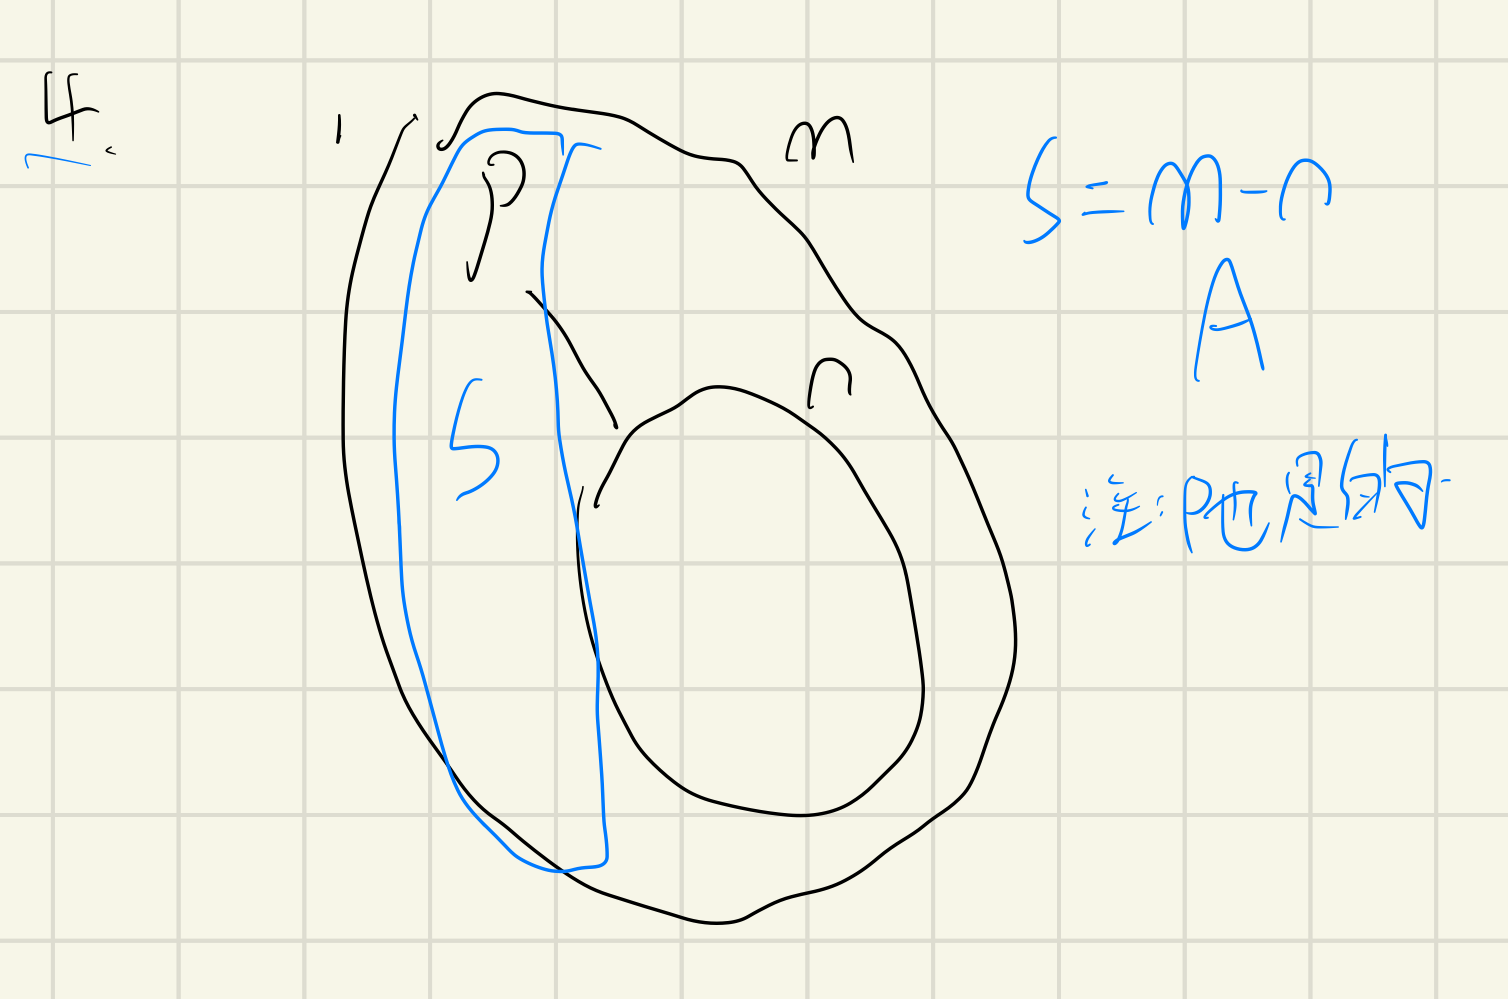 4.
1
m
P
n
S
S=m-n
A
注:P也是的